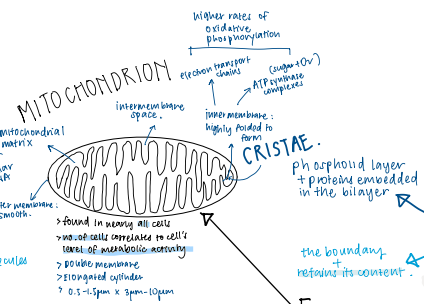 higher rates of
oxidative
phosphorylation
electron transport
chains
(sugar + O2)
ATP synthase
complexes
MITOCHONDRION
intermembrane
space.
innermembrane:
highly folded to
form
CRISTAE.
mitochondrial
matrix
membrane:
smooth.
> found in nearly all cells
> no. of cells correlates to cell's
level of metabolic activity
> Double membrane
> Elongated cylinder
> 0.5-1.5µm x 3µm-10µm
phosphoid layer
+ proteins embedded
in the bilayer
the boundary
+
retains its content.